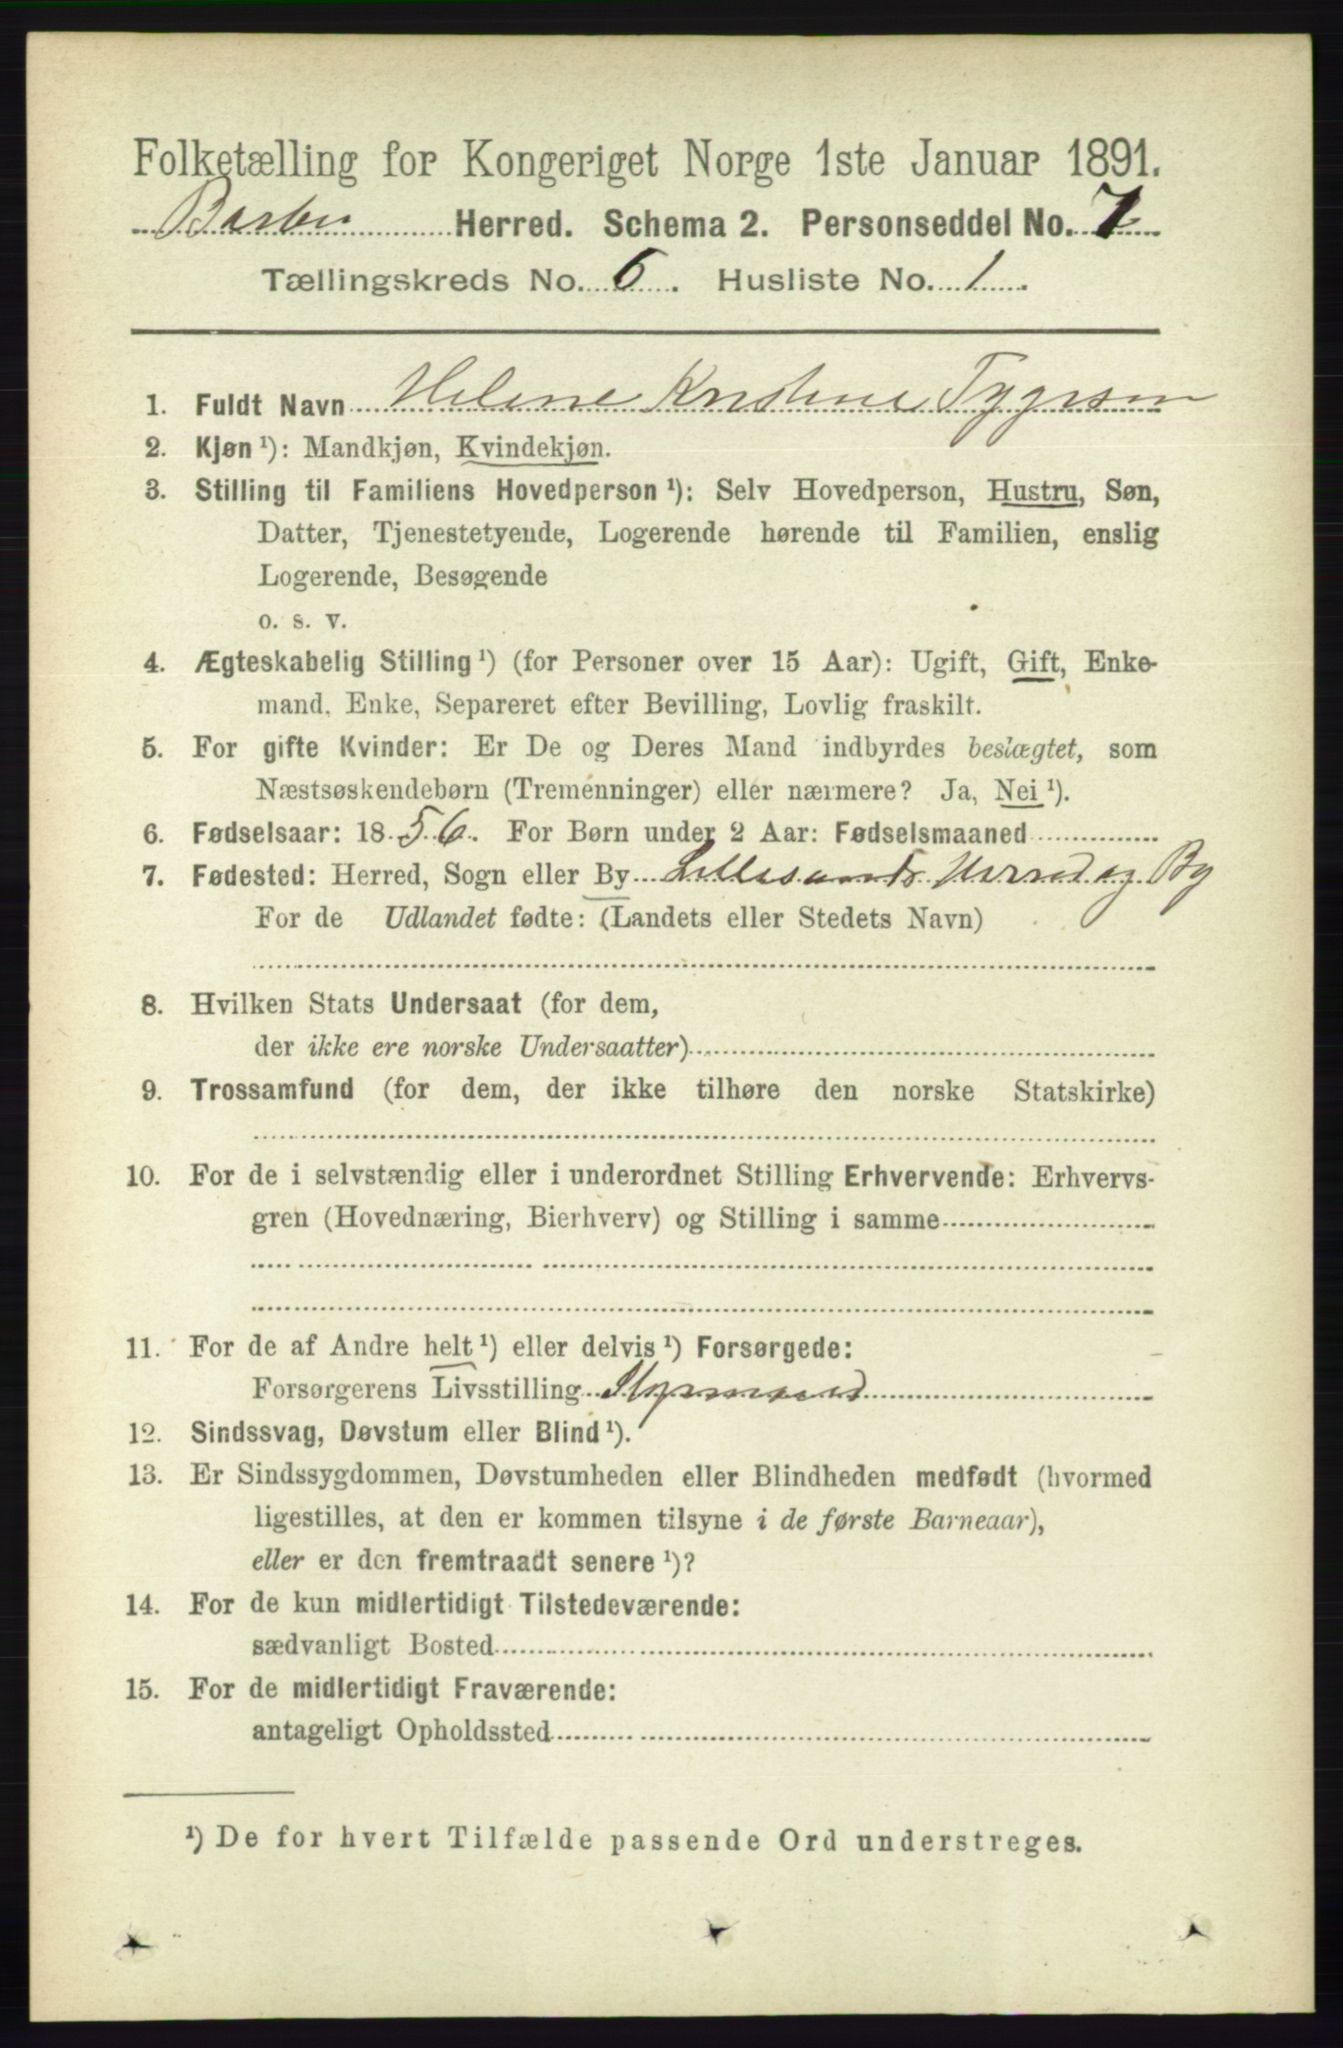 Folketælling for Kongeriget Norge 1ste Januar 1891.
Barbu Herred. Schema 2. Personseddel No. 7
Tællingskreds No. 6. Husliste No. 1.
1. Fuldt Navn Helene Kristine
2. Kjøn ¹): Mandkjøn, Kvindekjøn.
3. Stilling til Familiens Hovedperson ¹): Selv Hovedperson, Hustru, Søn,
Datter, Tjenestetyende, Logerende hørende til Familien, enslig
Logerende, Besøgende
o. s. v.
4. Ægteskabelig Stilling ¹) (for Personer over 15 Aar): Ugift, Gift, Enke-
mand, Enke, Separeret efter Bevilling, Lovlig fraskilt.
5. For gifte Kvinder: Er De og Deres Mand indbyrdes beslægtet, som
Næstsøskendebørn (Tremenninger) eller nærmere? Ja, Nei ¹).
6. Fødselsaar: 1856. For Børn under 2 Aar: Fødselsmaaned
7. Fødested: Herred, Sogn eller By Lillesands Herred og By
For de Udlandet fødte: (Landets eller Stedets Navn)
8. Hvilken Stats Undersaat (for dem,
der ikke ere norske Undersaatter)
9. Trossamfund (for dem, der ikke tilhøre den norske Statskirke)
10. For de i selvstændig eller i underordnet Stilling Erhvervende: Erhvervs-
gren (Hovednæring, Bierhverv) og Stilling i samme
11. For de af Andre helt ¹) eller delvis ¹) Forsørgede:
Forsørgerens Livsstilling Styrmand
12. Sindssvag, Døvstum eller Blind ¹).
13. Er Sindssygdommen, Døvstumheden eller Blindheden medfødt (hvormed
ligestilles, at den er kommen tilsyne i de første Barneaar),
eller er den fremtraadt senere ¹)?
14. For de kun midlertidigt Tilstedeværende:
sædvanligt Bosted
15. For de midlertidigt Fraværende:
antageligt Opholdssted
¹) De for hvert Tilfælde passende Ord understreges.